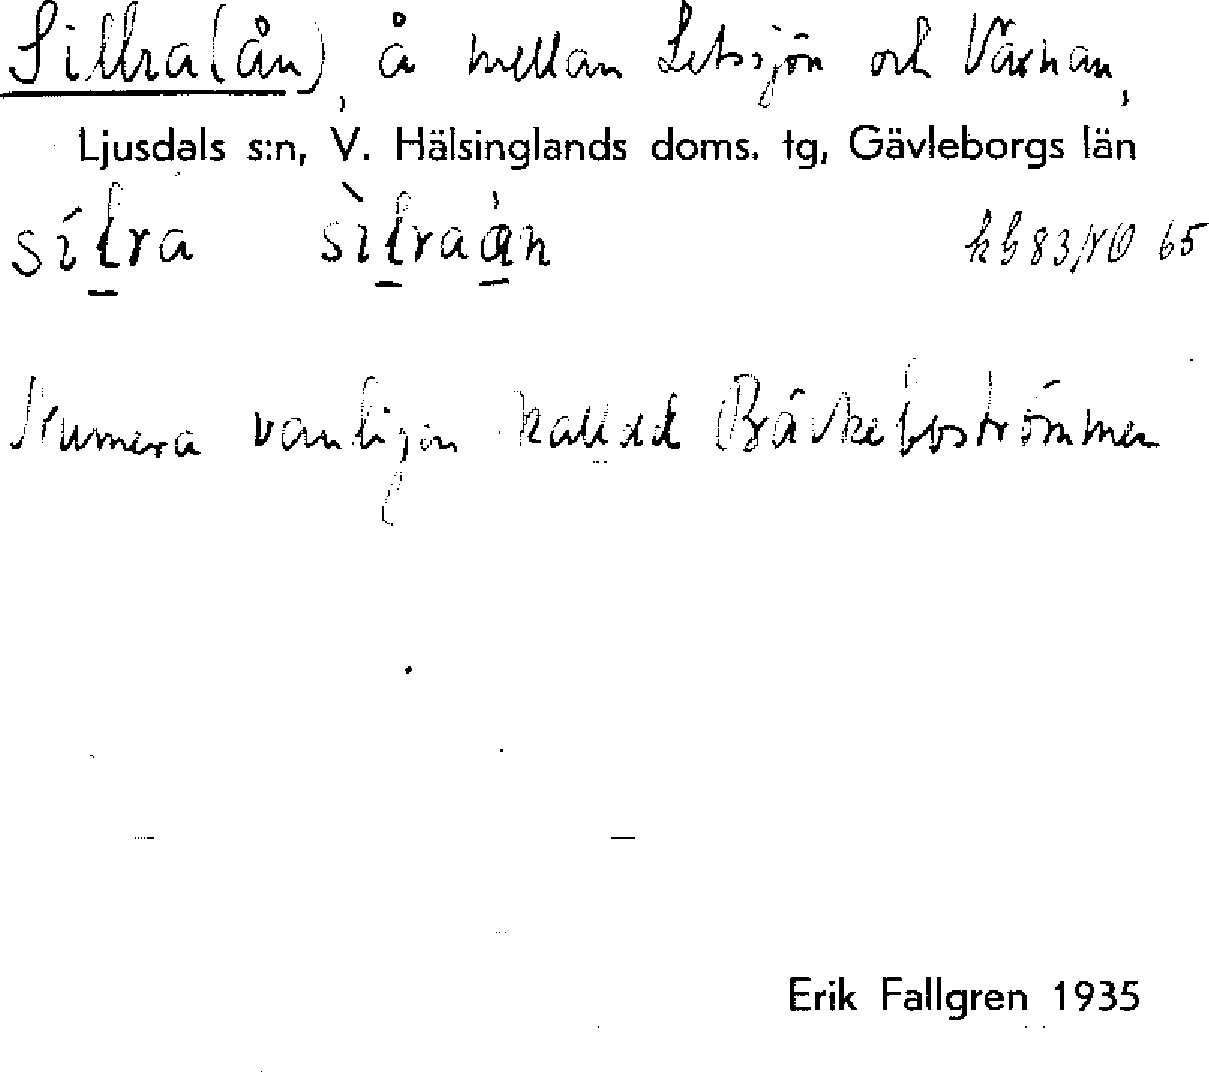 Sillra(ån), å mellan Letssjön och Växnan,
Ljusdals s:n, V. Hälsinglands doms. tg, Gävleborgs län
sílra sìlraån kb 83/NO 65
Numera vanligen kallad Bäckeboströmmen
Erik Fallgren 1935